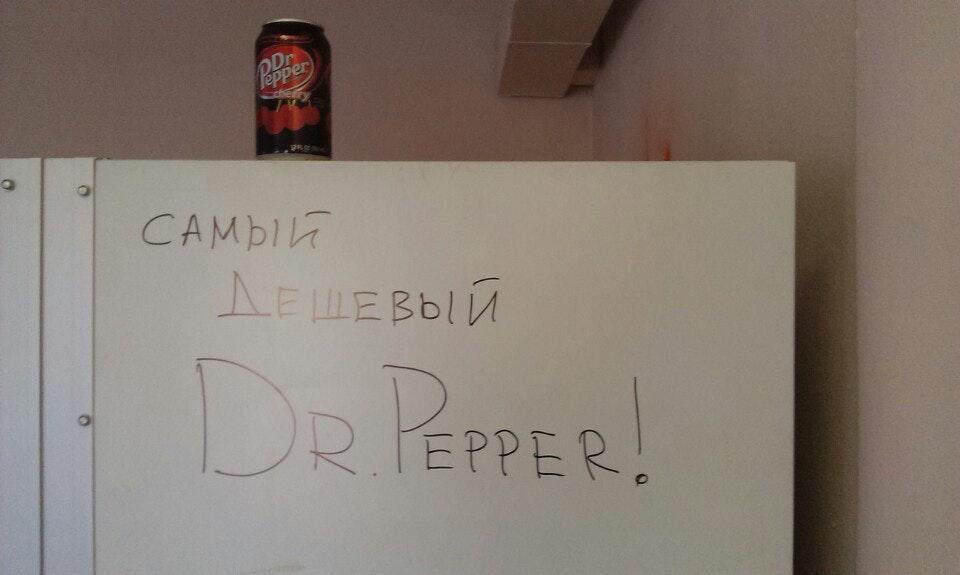 Dr
Pepper
cherry
САМЫЙ
ДЕШЕВЫЙ
DR. PEPPER!